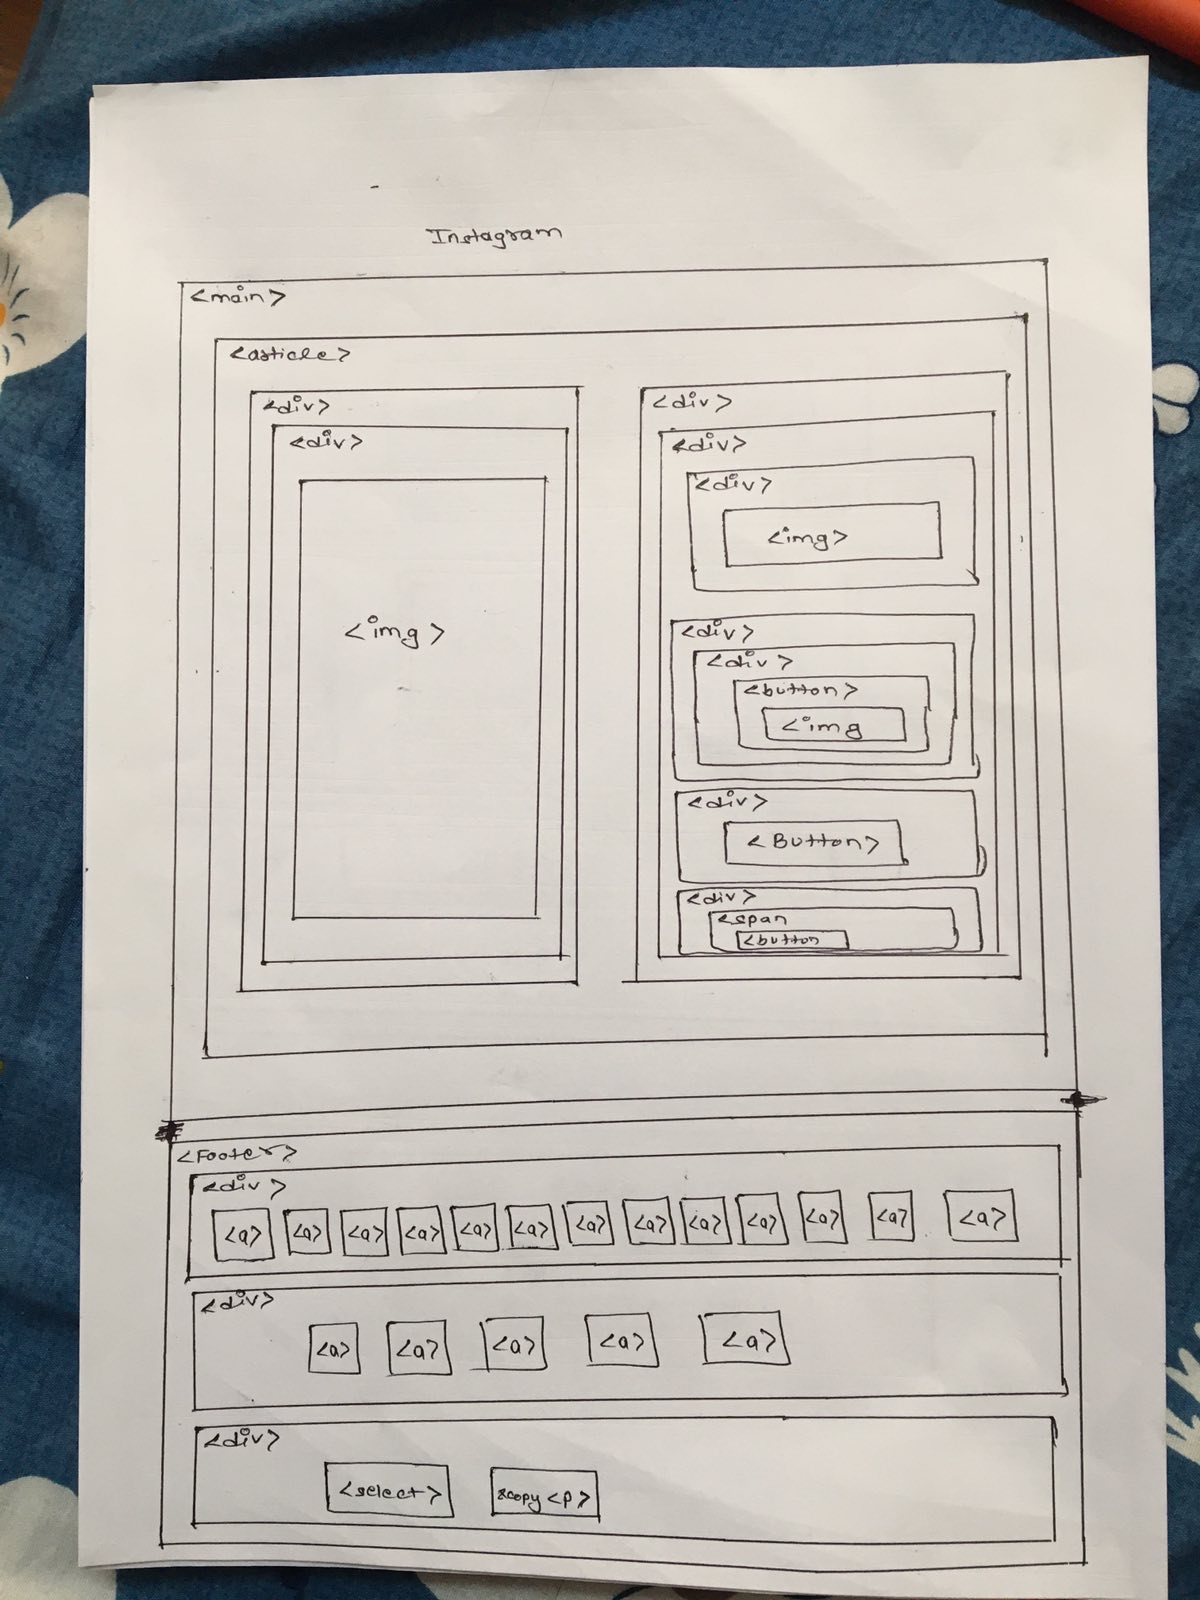 Instagram
<main>
<article>
<div>
<div>
<img>
<div>
<div>
<div>
<img>
<div>
<div>
<button>
<img
<div>
<Button>
<div>
<span
<button
<Footer>
<div>
<a> <a> <a> <a> <a> <a> <a> <a> <a> <a> <a> <a> <a>
<div>
<a> <a> <a> <a> <a>
<div>
<select> &copy <p>